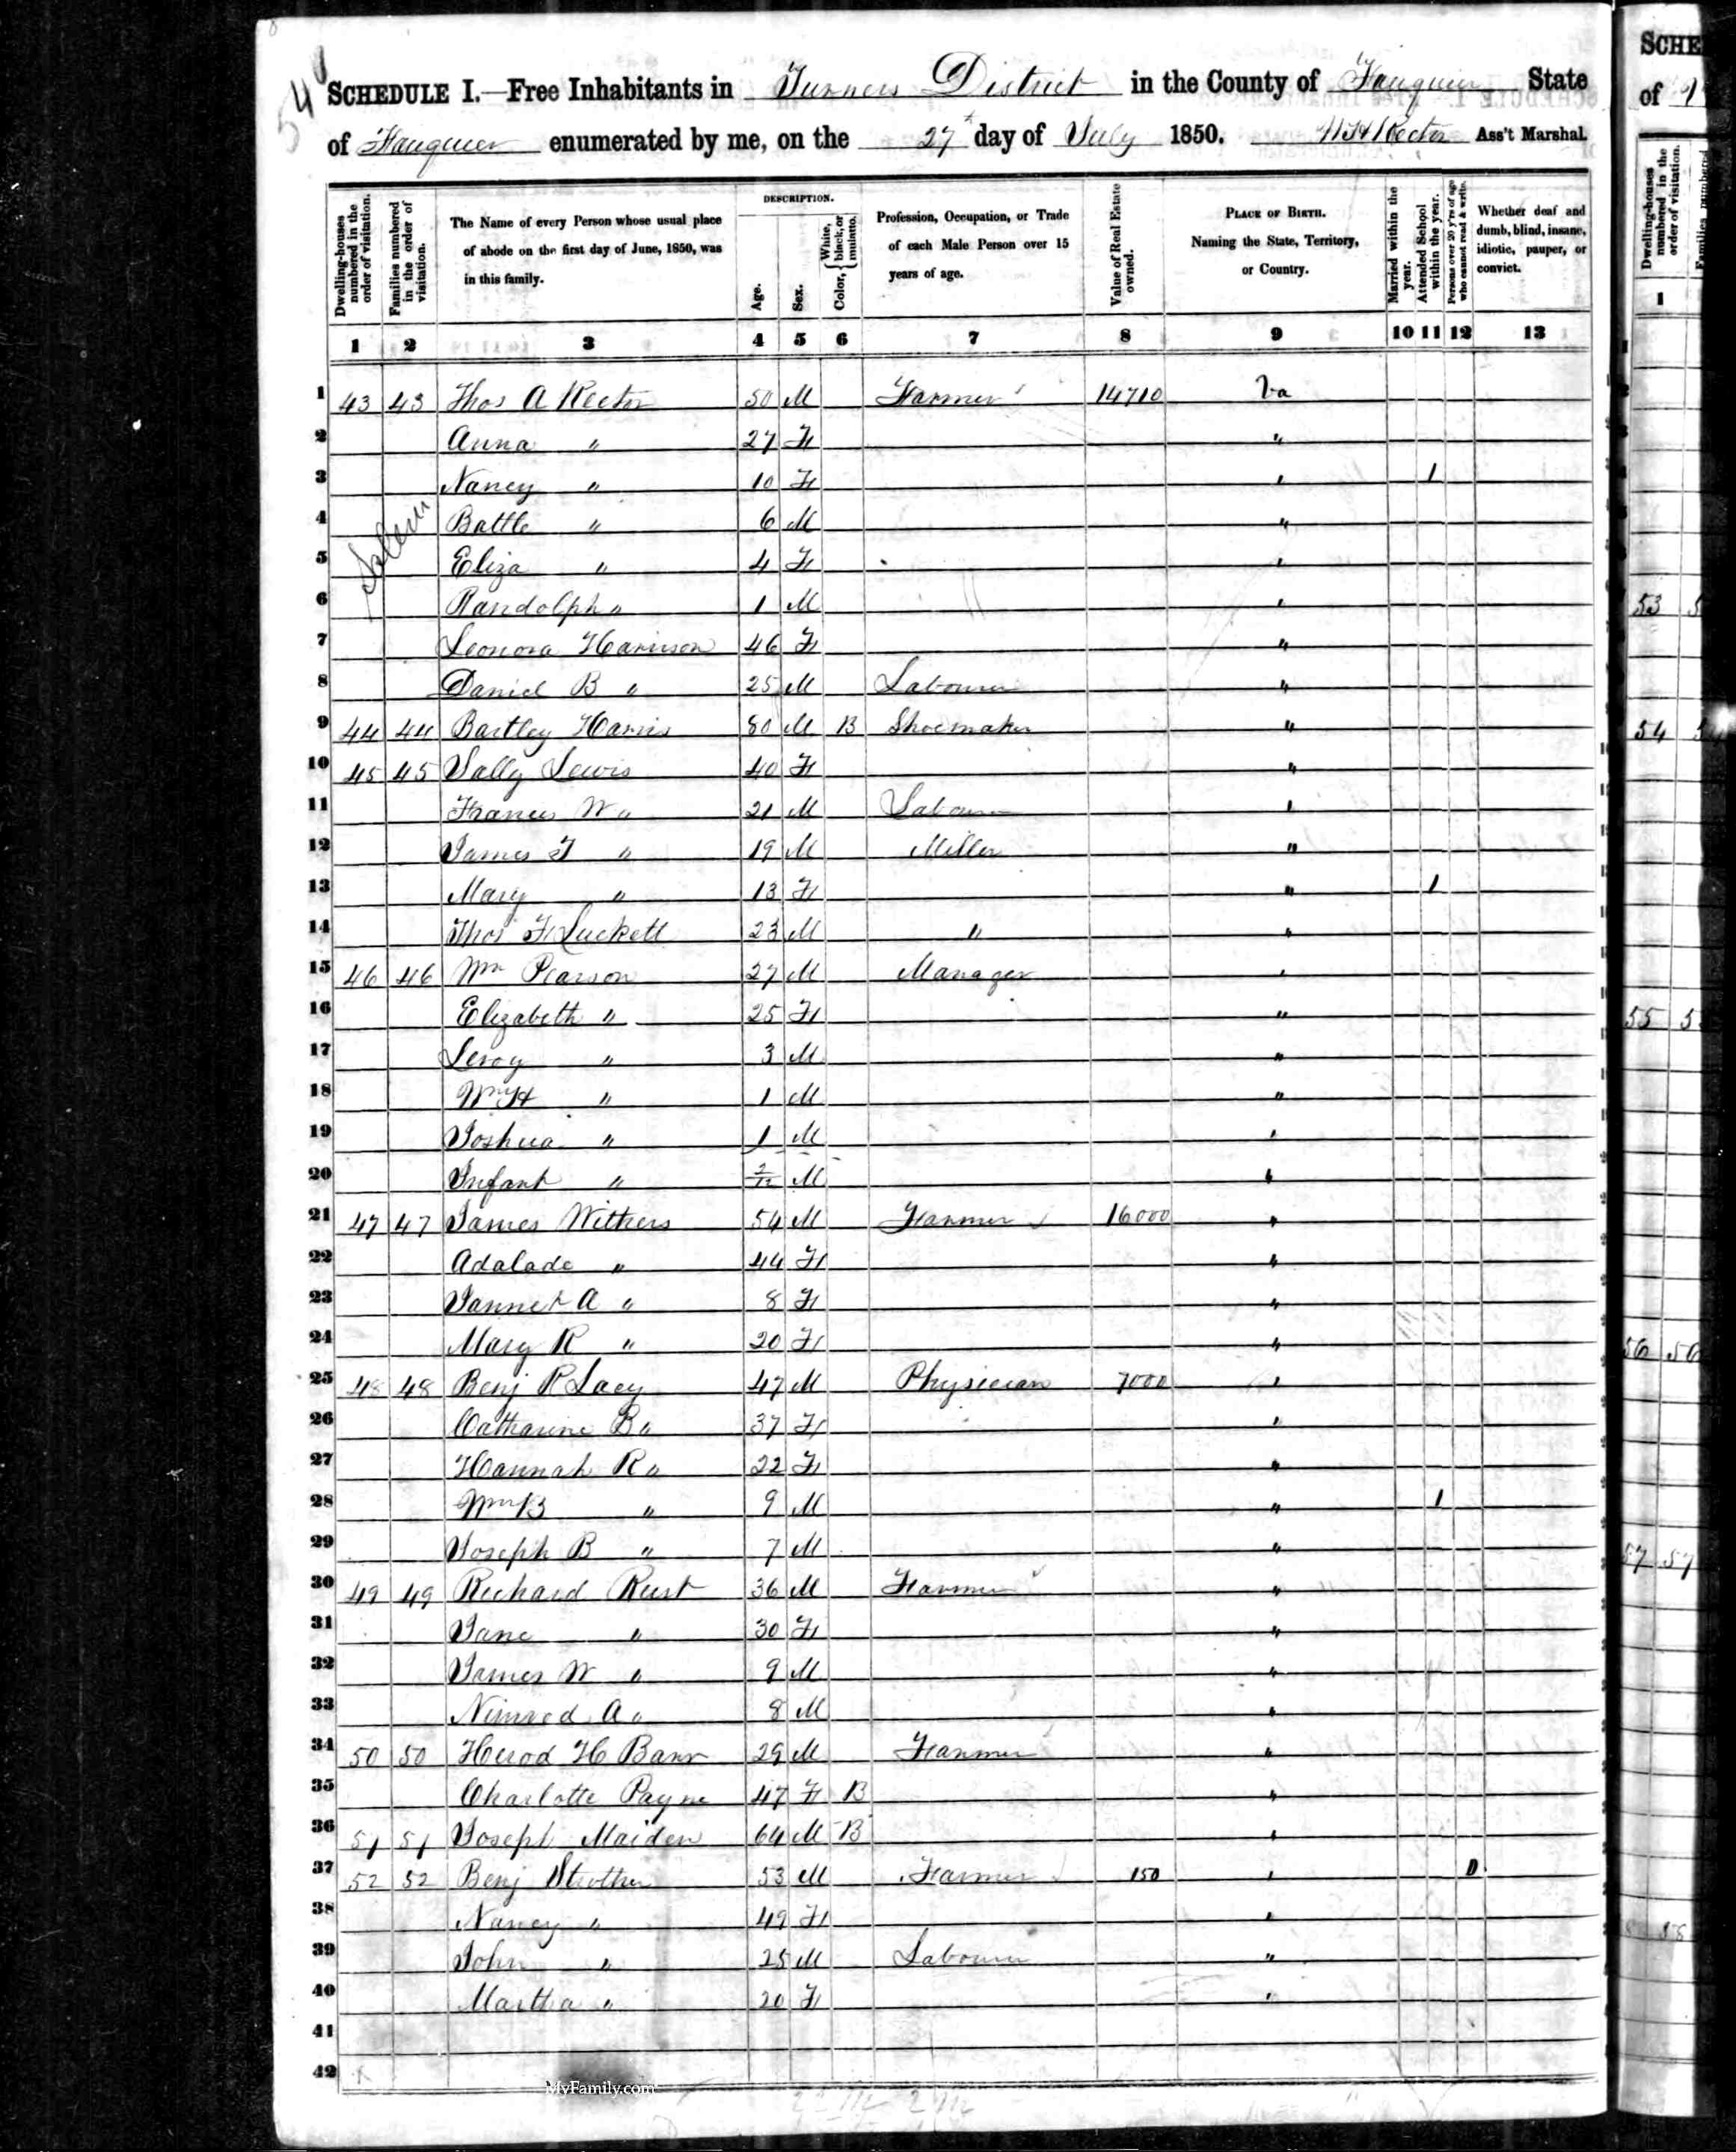 54
SCHEDULE I.—Free Inhabitants in Turners District in the County of Fauquier State
of Fauquier enumerated by me, on the 27th day of July 1850. Rector Ass't Marshal.
Dwelling-houses numbered in the order of visitation.
Families numbered in the order of visitation.
The Name of every Person whose usual place of abode on the first day of June, 1850, was in this family.
DESCRIPTION.
Age.
Sex.
Color, { White, black, or mulatto.
Profession, Occupation, or Trade of each Male Person over 15 years of age.
Value of Real Estate owned.
PLACE OF BIRTH. Naming the State, Territory, or Country.
Married within the year.
Attended School within the year.
Persons over 20 y'rs of age who cannot read & write.
Whether deaf and dumb, blind, insane, idiotic, pauper, or convict.
1 2 3 4 5 6 7 8 9 10 11 12 13
Salem
1 43 43 Thos A Rector 50 M Farmer 14710 Va
2 Anna " 27 F "
3 Nancy " 10 F " 1
4 Battle " 6 M "
5 Eliza " 4 F "
6 Randolph " 1 M "
7 Leonora Harrison 46 F "
8 Daniel B " 25 M Labourer "
9 44 44 Bartley Harris 80 M B Shoemaker "
10 45 45 Sally Lewis 40 F "
11 Frances W " 21 M Labourer "
12 James F " 19 M Miller "
13 Mary " 13 F " 1
14 Thos F Luckett 23 M " "
15 46 46 Wm Pearson 27 M Manager "
16 Elizabeth " 25 F "
17 Leroy " 3 M "
18 Wm H " 1 M "
19 Joshua " 1 M "
20 Infant " 2/12 M "
21 47 47 James Withers 54 M Farmer 16000 "
22 Adalade " 44 F "
23 Jannet A " 8 F "
24 Mary R " 20 F "
25 48 48 Benj R Lacy 47 M Physician 7000 "
26 Catharine B " 37 F "
27 Hannah R " 22 F "
28 Wm B " 9 M " 1
29 Joseph B " 7 M "
30 49 49 Richard Rust 36 M Farmer "
31 Jane " 30 F "
32 James W " 9 M "
33 Nimrod A " 8 M "
34 50 50 Herod H Barr 29 M Farmer "
35 Charlotte Payne 47 F B "
36 51 51 Joseph Maiden 64 M B "
37 52 52 Benj Strother 53 M Farmer 150 "
38 Nancy " 49 F "
39 John " 25 M Labourer "
40 Martha " 20 F "
41
42
MyFamily.com
SCHE
of
Dwelling-houses numbered in the order of visitation.
Families numbered
1
53
54
55
56 56
57 57
58